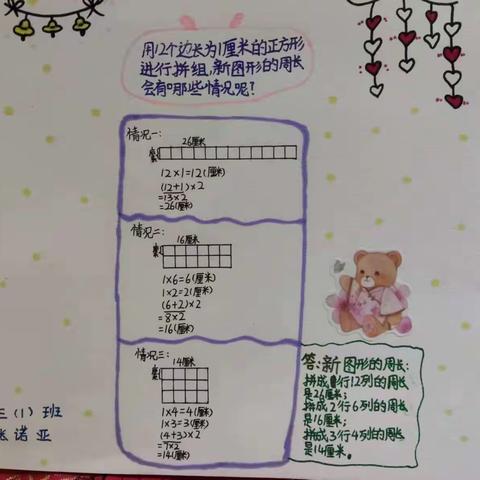 用12个边长为1厘米的正方形
进行拼组,新图形的周长
会有哪些情况呢?
情况一:
26厘米
12×1=12(厘米)
(12+1)×2
=13×2
=26(厘米)
情况二:
16厘米
1×6=6(厘米)
1×2=2(厘米)
(6+2)×2
=8×2
=16(厘米)
情况三:
14厘米
1×4=4(厘米)
1×3=3(厘米)
(4+3)×2
=7×2
=14(厘米)
答:新图形的周长:
拼成1行12列的周长
是26厘米;
拼成2行6列的周长
是16厘米;
拼成3行4列的周长
是14厘米。
三(1)班
诺亚